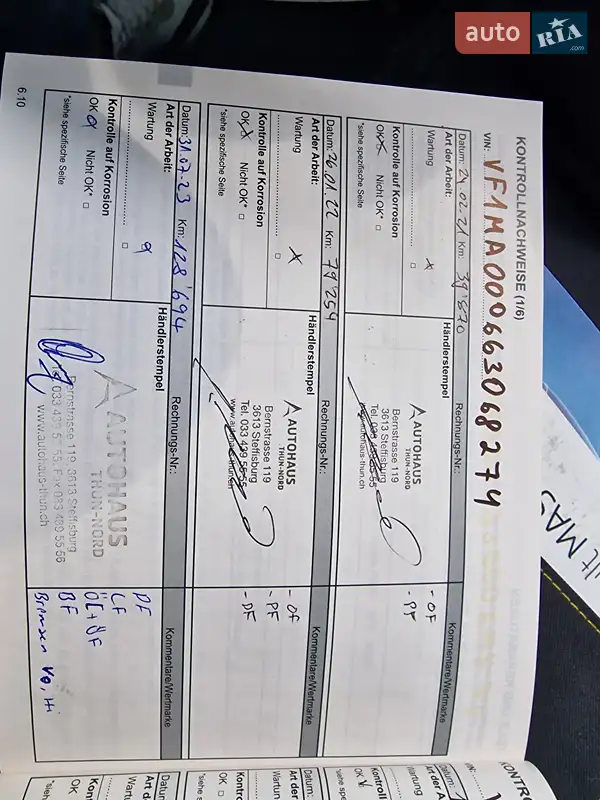 auto RIA.com
KONTROLLNACHWEISE (1/6)
VIN: VF1MA000663068274
Datum: 24.02.21 Km: 39'870
Art der Arbeit:
Wartung x
Kontrolle auf Korrosion
OK x Nicht OK* □
*siehe spezifische Seite
Händlerstempel
AUTOHAUS
THUN-NORD
Bernstrasse 119
3613 Steffisburg
Tel. 033 439 55 55
www.autohaus-thun.ch
Rechnungs-Nr.:
Kommentare/Wertmarke
- OF
- PF
Datum: 26.01.22 Km: 79'254
Art der Arbeit:
Wartung x
Kontrolle auf Korrosion
OK x Nicht OK* □
*siehe spezifische Seite
Händlerstempel
AUTOHAUS
THUN-NORD
Bernstrasse 119
3613 Steffisburg
Tel. 033 439 55 55
www.autohaus-thun.ch
Rechnungs-Nr.:
Kommentare/Wertmarke
- OF
- PF
- DF
Datum: 31.07.23 Km: 128'694
Art der Arbeit:
Wartung
Kontrolle auf Korrosion
OK Nicht OK* □
*siehe spezifische Seite
Händlerstempel
AUTOHAUS
THUN-NORD
Bernstrasse 119, 3613 Steffisburg
033 439 55 55 Fax 033 439 55 56
www.autohaus-thun.ch
Rechnungs-Nr.:
Kommentare/Wertmarke
DF
LF
ÖL+ÖF
BF
Bremsen Vo, Hi
6.10